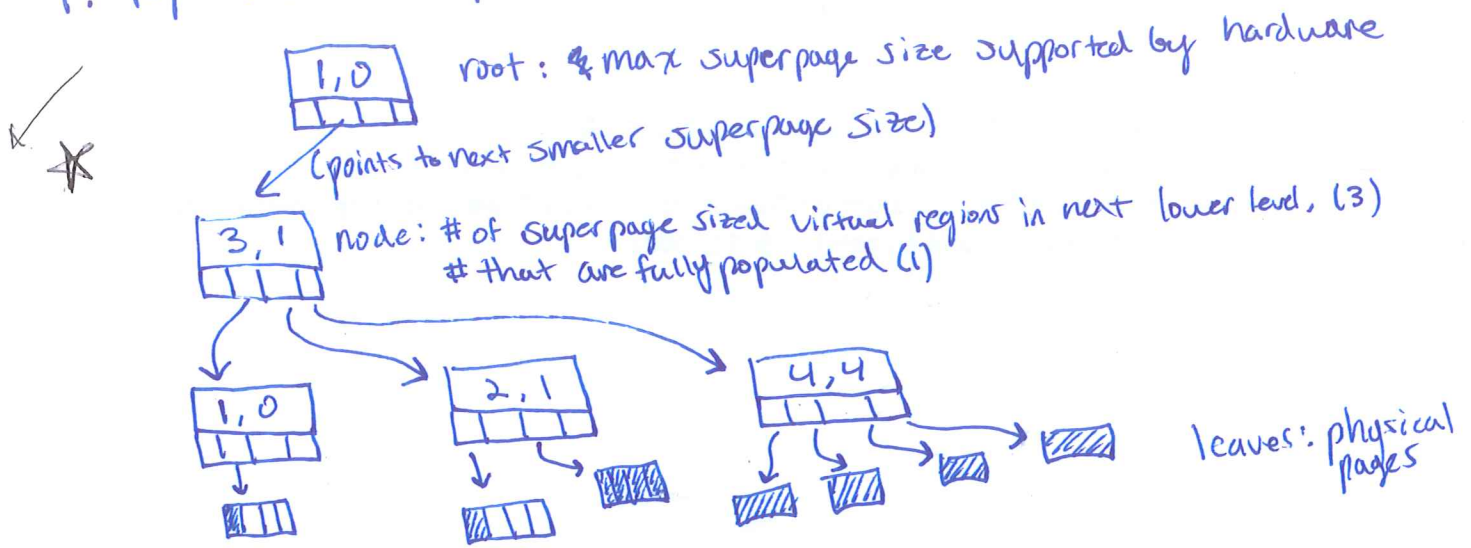 1,0
root: max superpage size supported by hardware
(points to next smaller superpage size)
3,1
node: # of superpage sized virtual regions in next lower level, (3)
# that are fully populated (1)
1,0
2,1
4,4
leaves: physical
pages